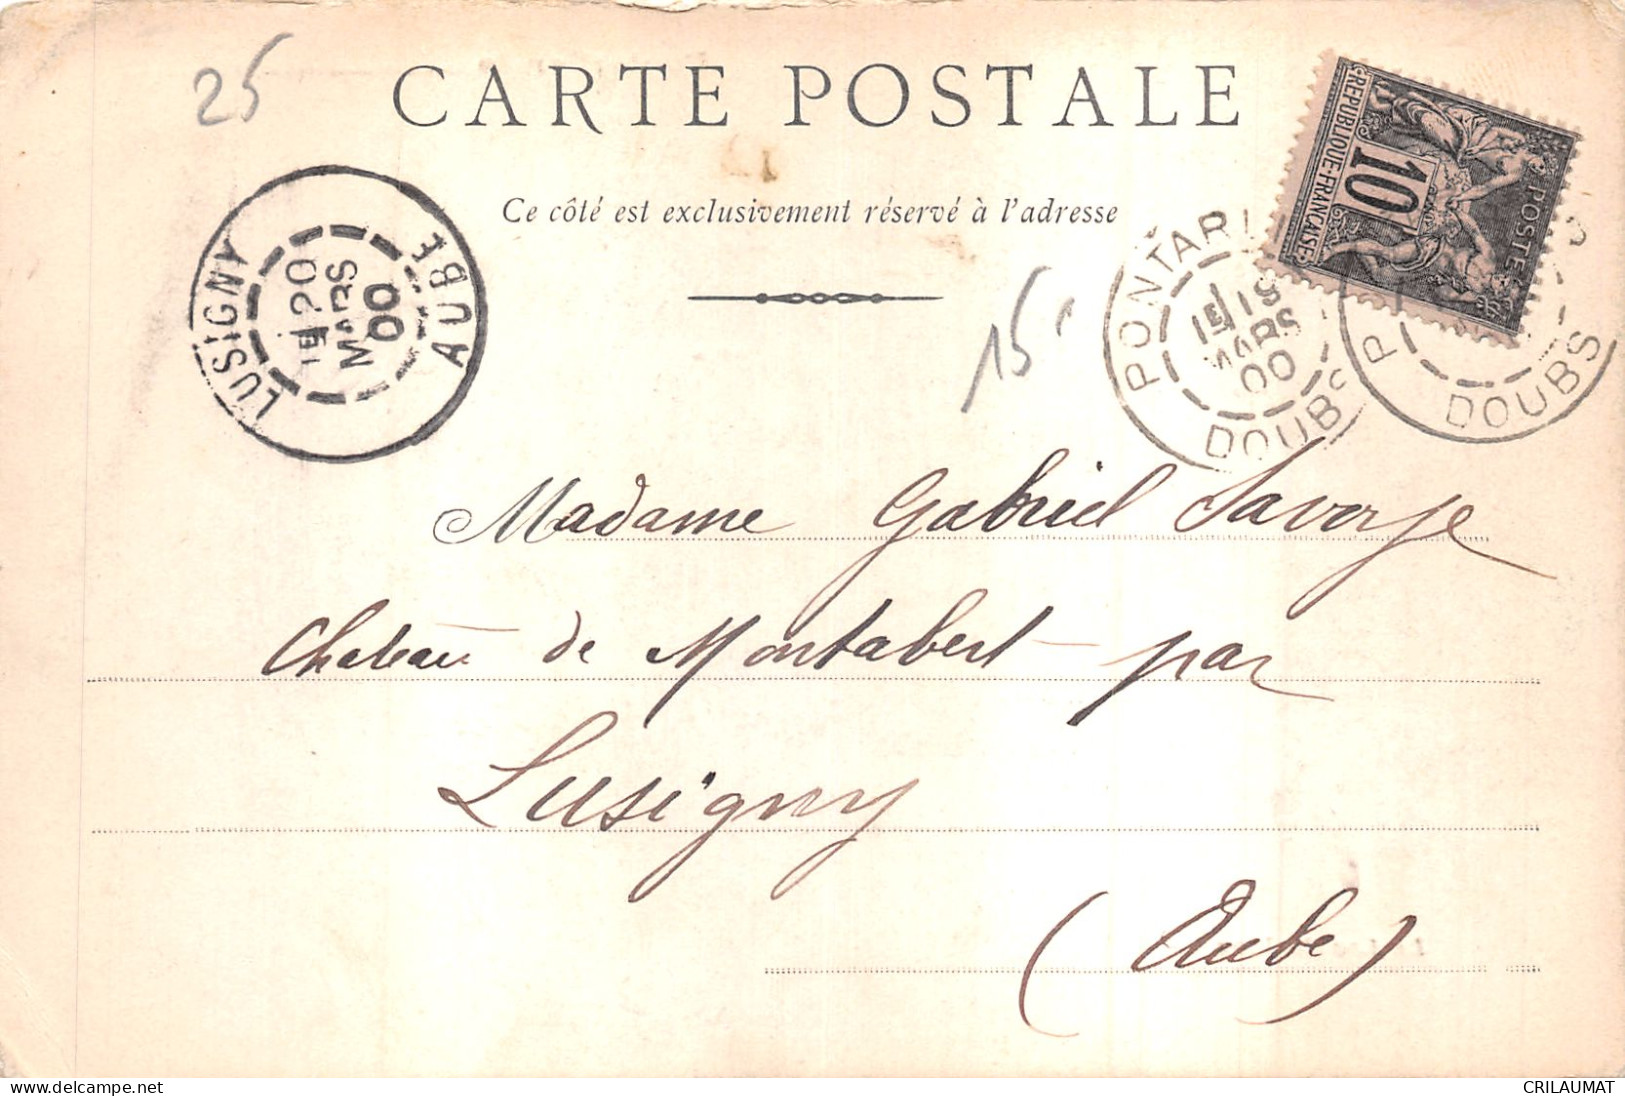 25
CARTE POSTALE
Ce côté est exclusivement réservé à l'adresse
RÉPUBLIQUE FRANÇAISE
10
POSTES
LUSIGNY
AUBE
1E 20
MARS
00
PONTARLI
1E 19
MARS
00
DOUBS
P
DOUBS
15
Madame Gabriel
Chateau de Montabert par
Lusigny
(Aube)
www.delcampe.net
CRILAUMAT